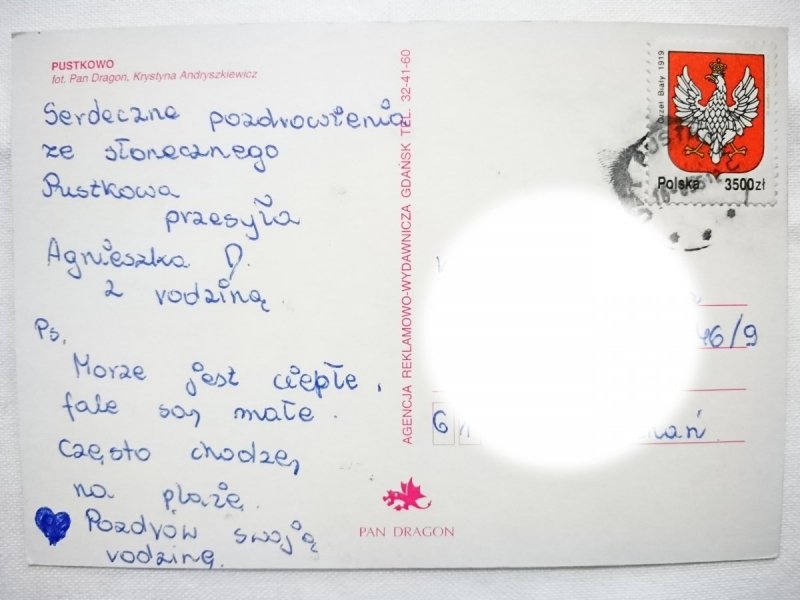 PUSTKOWO
fot. Pan Dragon, Krystyna Andryszkiewicz
Serdeczne pozdrowienia
ze słonecznego
Pustkowa
przesyła
Agnieszka D.
z rodziną.
Ps.
Morze jest ciepłe,
fale są małe.
Często chodzę
na plażę.
Pozdrów swoją
rodzinę.
AGENCJA REKLAMOWO-WYDAWNICZA GDAŃSK TEL. 32-41-60
PAN DRAGON
Orzeł Biały 1919
Polska 3500zł
46/9
6